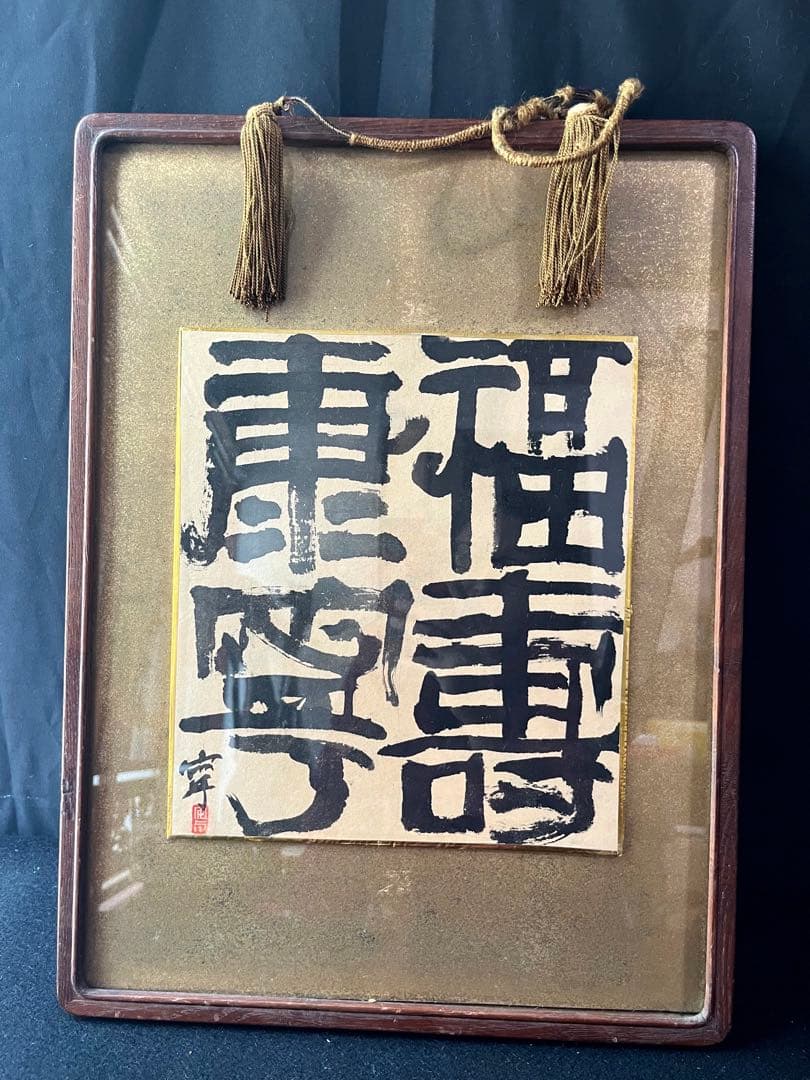 福壽
康寧